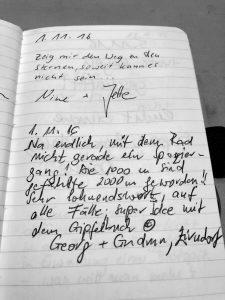 1.11.16
Zeig mir den Weg zu den
Sternen, soweit kann es
nicht sein...
Nine + Jelle
1.11.16
Na endlich, mit dem Rad
nicht gerade ein Spazier-
gang! Die 1000 m sind
gefühlte 2000 m geworden!!
Sehr lohnenswert, auf
alle Fälle, super Idee mit
dem Gipfelbuch ☺
Georg + Gudrun, Zirndorf